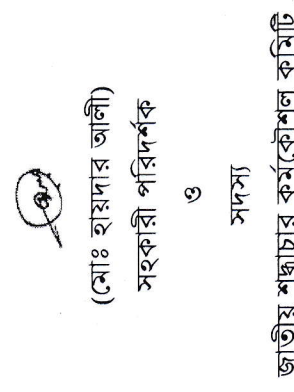 (মোঃ হায়দার আলী)
সহকারী পরিদর্শক
ও
সদস্য
জাতীয় শুদ্ধাচার কর্মকৌশল কমিটি